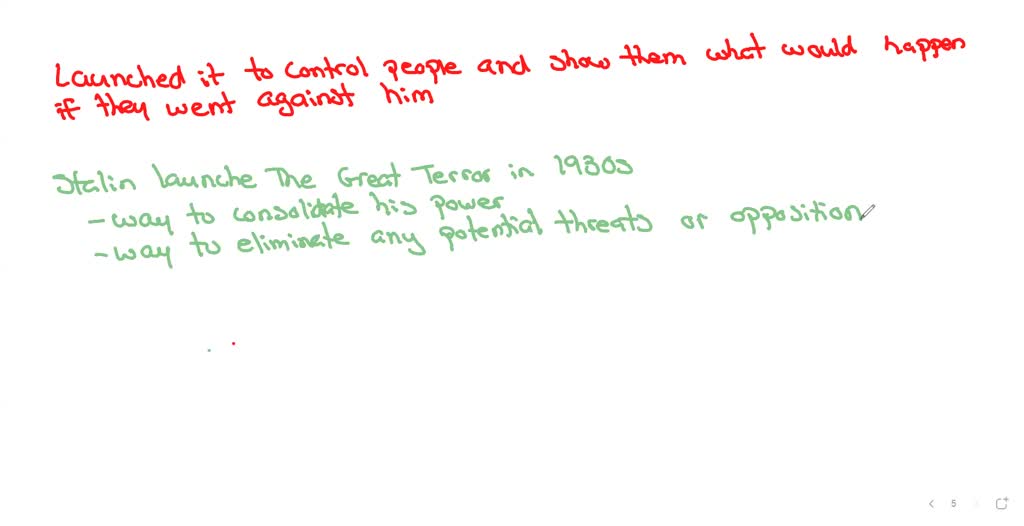 Launched it to control people and show them what would happen
if they went against him
Stalin launche The Great Terror in 1930s
- way to consolidate his power
- way to eliminate any potential threats or opposition
5